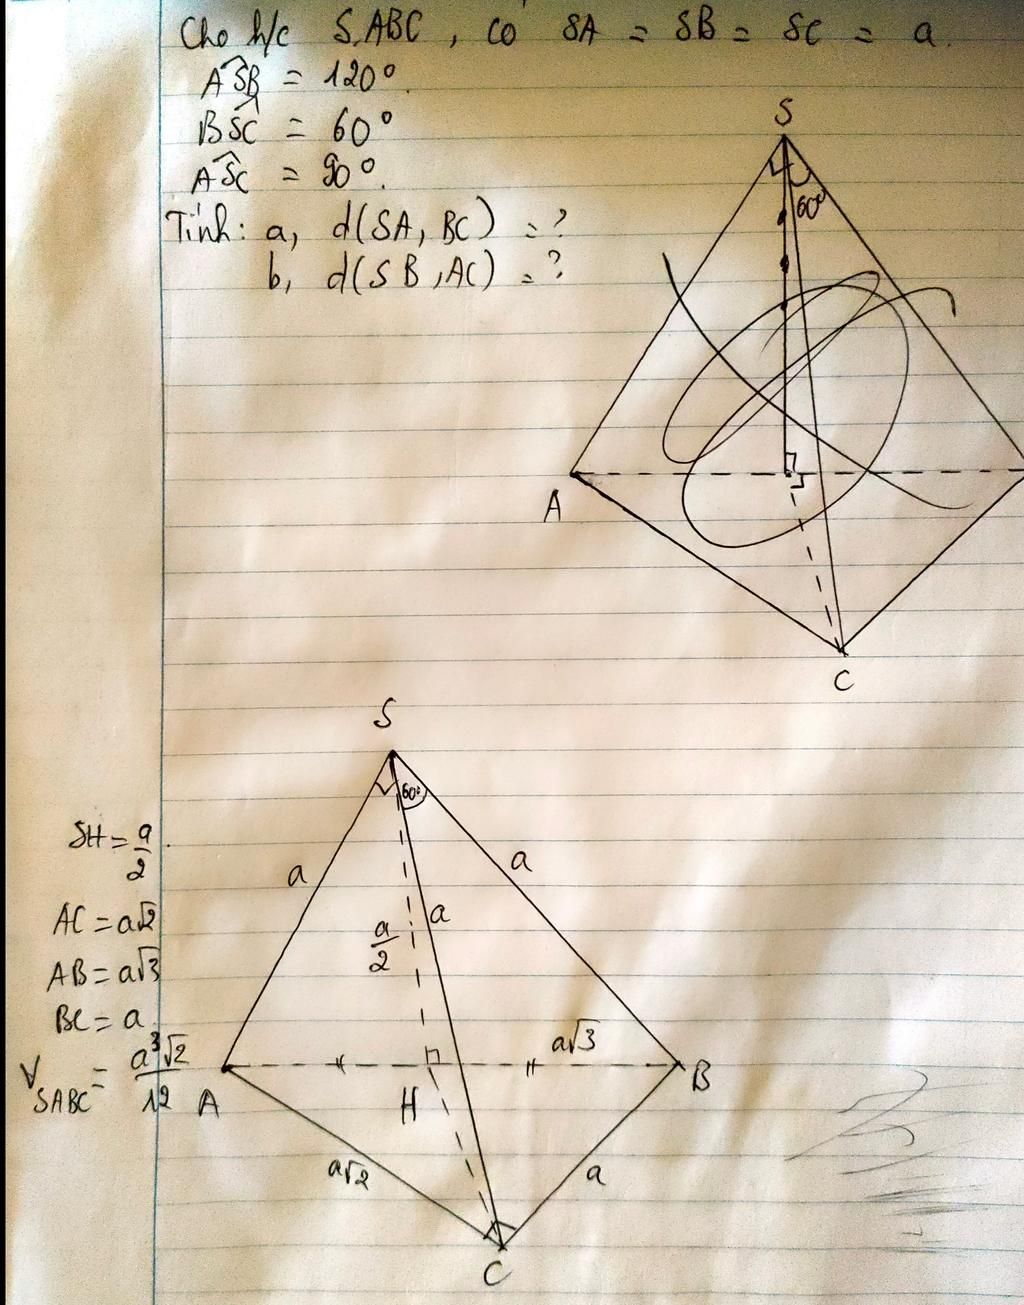 Cho h/c S.ABC, có SA = SB = SC = a.
ASB = 120°.
BSC = 60°
ASC = 90°.
Tính: a, d(SA, BC) = ?
b, d(SB, AC) = ?
S
60°
A
C
S
60°
SH = a/2.
a
a
a
a/2
AC = a√2
AB = a√3
BC = a.
a√3
V_SABC = a³√2/12
A
H
B
a√2
a
C